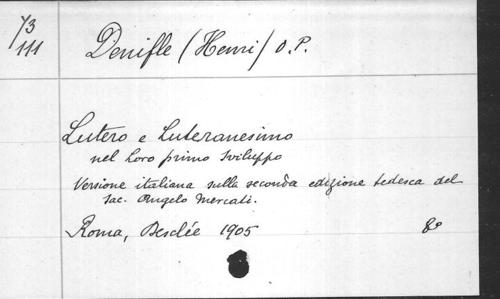 73
111
Denifle (Henri) O.P.
Lutero e Luteranesimo
nel loro primo sviluppo
Versione italiana sulla seconda edizione tedesca del
Sac. Angelo Mercati.
Roma, Desclée 1905 8º